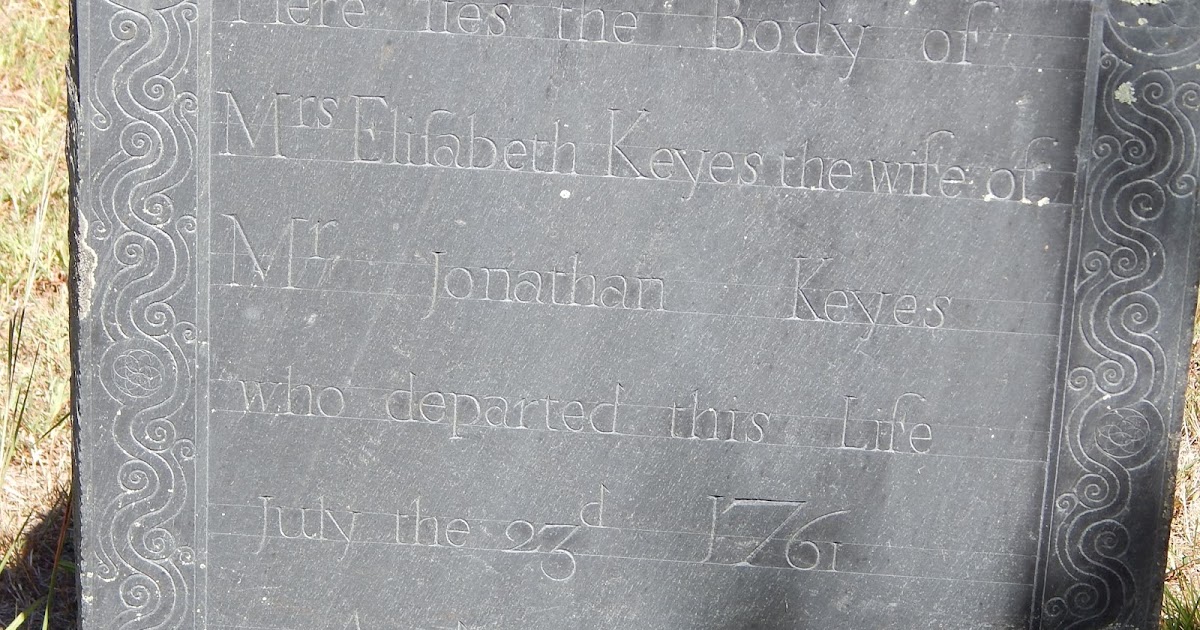 Here lies the Body of
Mrs Eliſabeth Keyes the wife of
Mr Jonathan Keyes
who departed this Life
July the 23d 1761